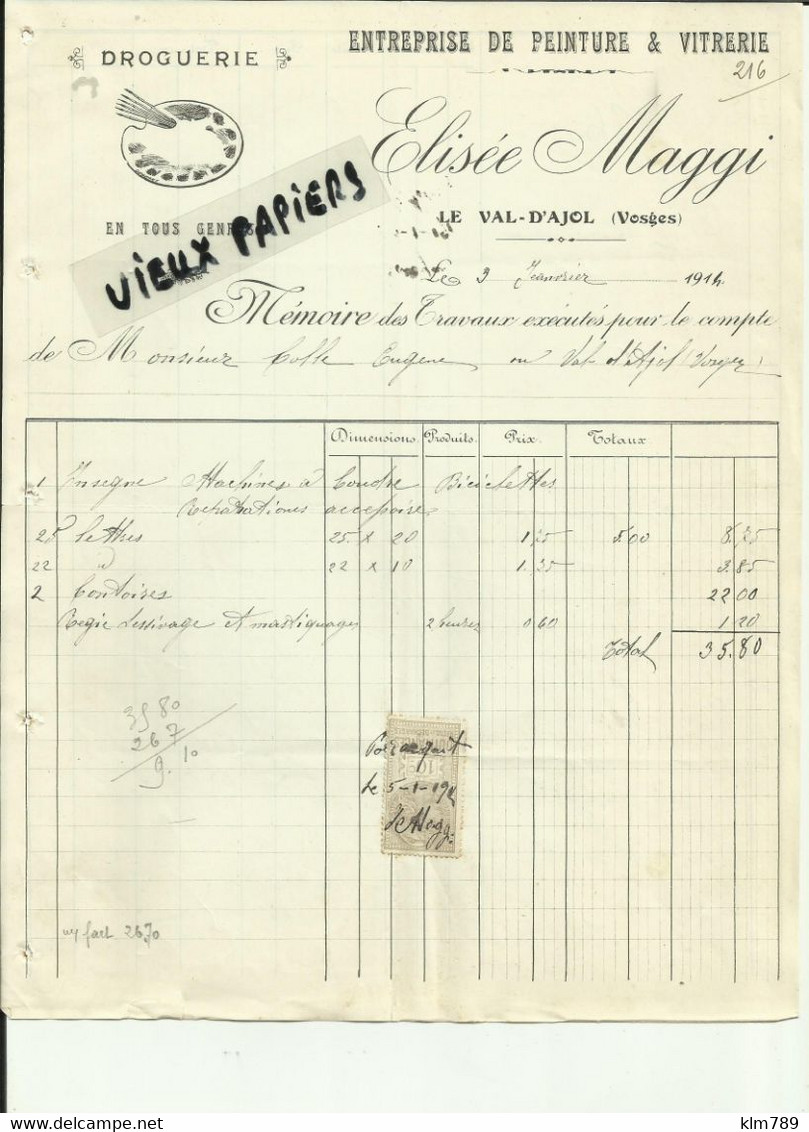 DROGUERIE
ENTREPRISE DE PEINTURE & VITRERIE
216
Elisée Maggi
EN TOUS GENRES
VIEUX PAPIERS
LE VAL-D'AJOL (Vosges)
Le 3 Jeanvier 1914
Mémoire des Travaux exécutés pour le compte
de Monsieur Colle Eugene au Val d'Ajol (Vosges)
Dimensions. Produits. Prix. Totaux
1 Enseigne Machines à Coudre Biciclettes
Reparationes accessoires
25 lettres 25 x 20 1,75 5.00 8,75
22 d 22 x 10 1.35 3.85
2 Contoires 22 00
Regie Lessivage et mastiquages 2 heures 0 60 1 20
Total 35.80
35 80
26 7
9. 10
Pour acquit
le 5-1-191
Maggi
fact 26,70
klm789